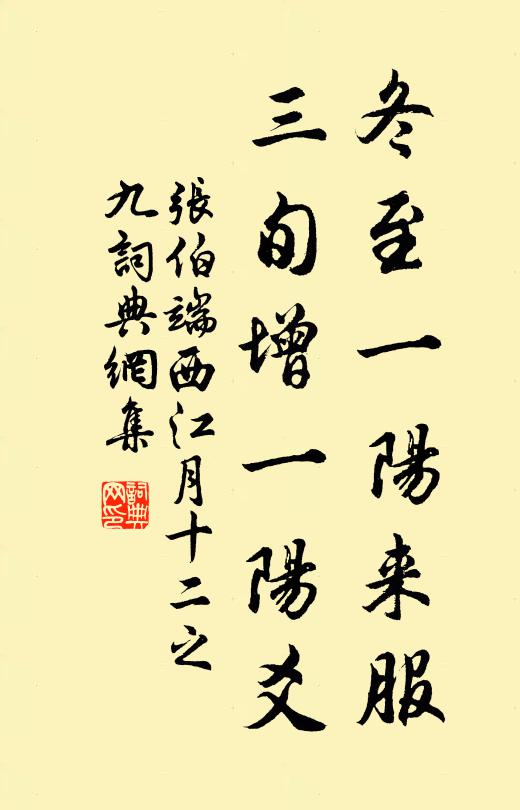 冬至一陽来服
三旬增一陽爻
張伯端西江月十二之
九詞典網集
詞典
网印